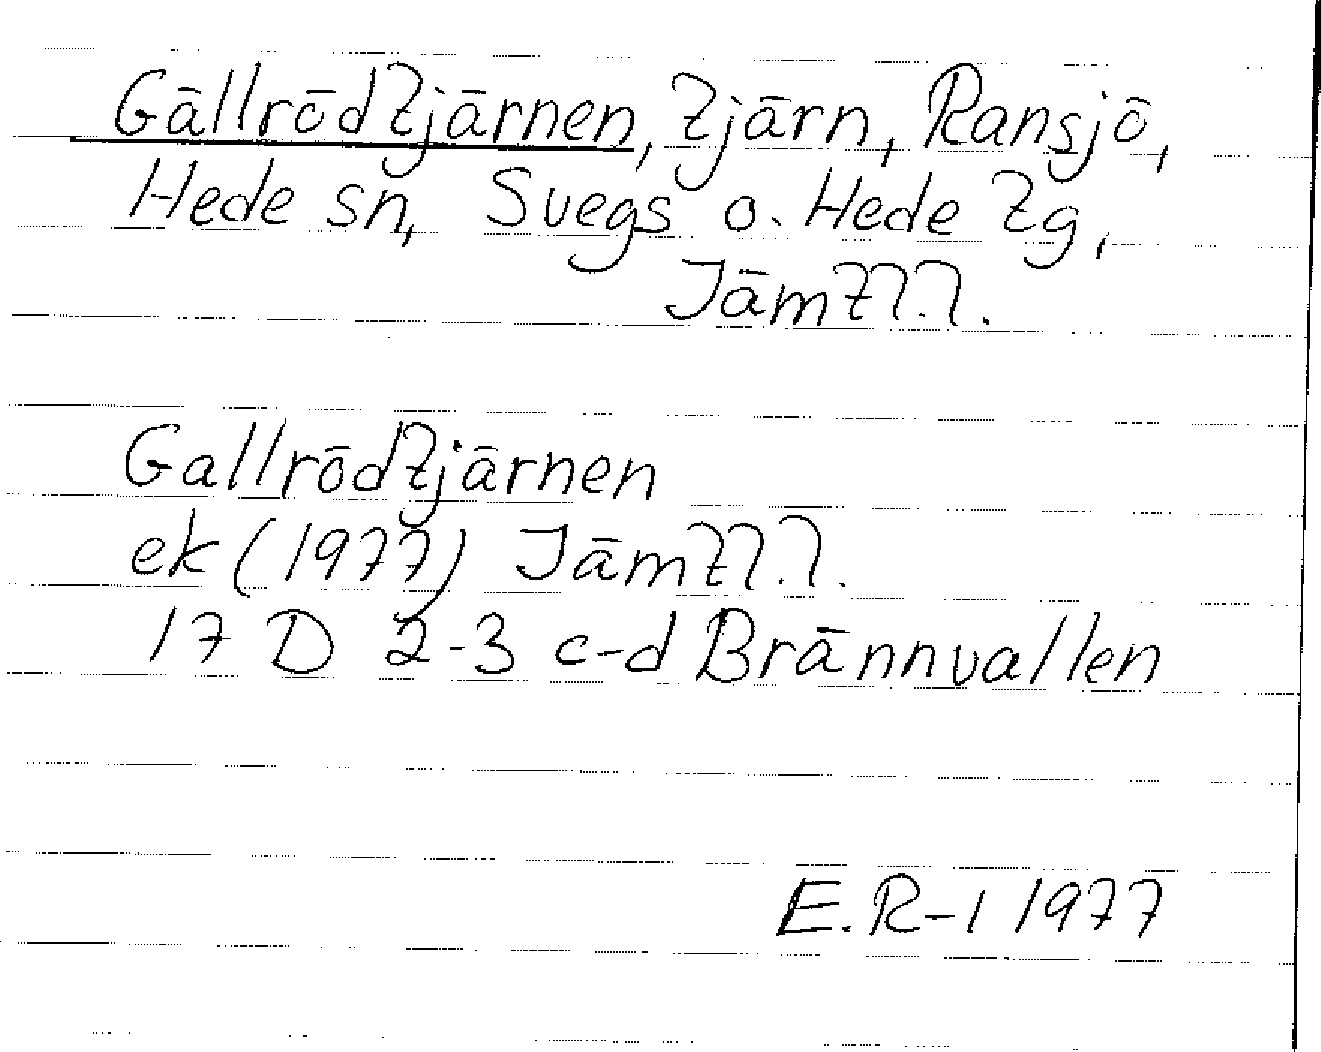 Gällrödtjärnen, tjärn, Ransjö,
Hede sn, Svegs o. Hede tg,
Jämtl.l.
Gallrödtjärnen
ek (1977) Jämtl.l.
17 D 2-3 c-d Brännvallen
E.R-l 1977